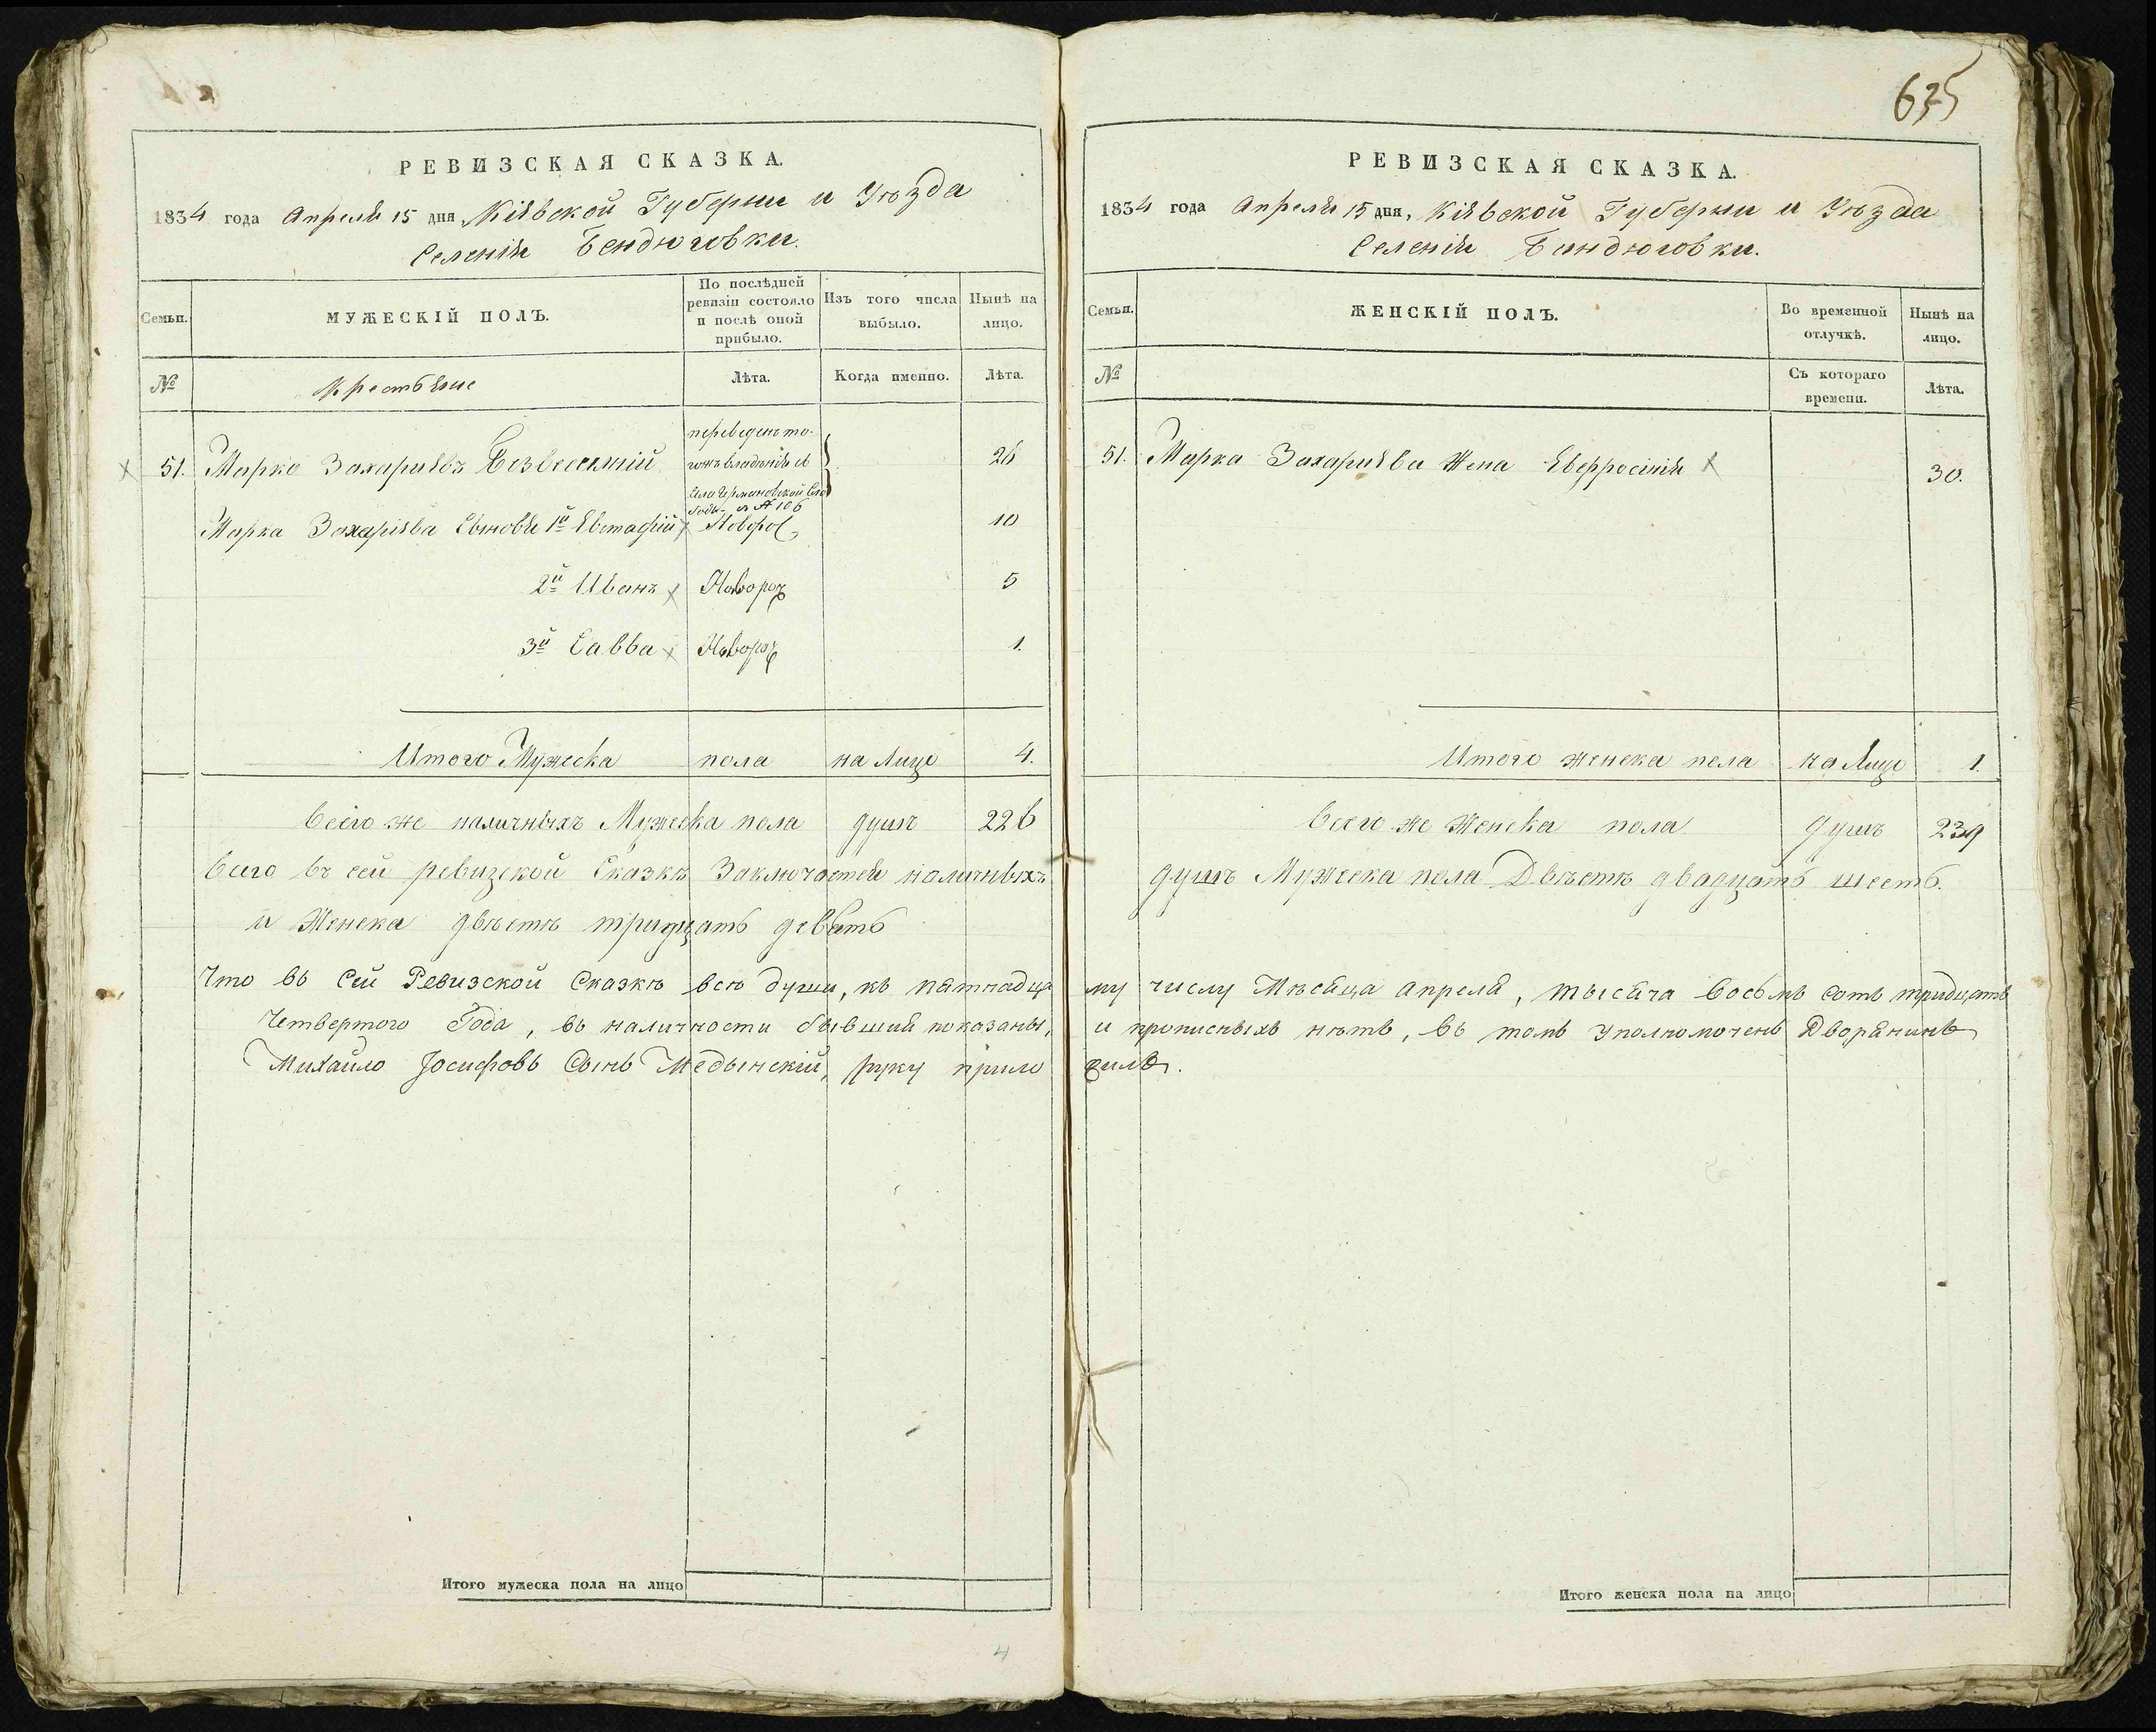 635
РЕВИЗСКАЯ СКАЗКА.
1834 года Апреля 15 дня, Кіевской Губерніи и Уѣзда
Селенія Бендюговки.
Семьи.
МУЖЕСКІЙ ПОЛЪ.
По послѣдней
ревизіи состояло
и послѣ оной
прибыло.
Изъ того числа
выбыло.
Нынѣ на
лицо.
№
Крестьяне
Лѣта.
Когда именно.
Лѣта.
переведенъ то-
гожъ владѣнія съ
села Германовской Сло
боды- съ № 106
51. Марко Захаріевъ 26
Марка Захаріева Сыновья 1й Евстафій Новорož 10
2й Иванъ Новорож 5
3й Савва Новорож 1.
Итого Мужеска пола на Лицо 4.
Всего же наличныхъ Мужеска пола душъ 226
Всего въ сей ревизской Сказкѣ Заключается наличныхъ
и Женска двѣстѣ тридцать девять
Что въ Сей Ревизской Сказкѣ всѣ души, къ пятнадца
Четвертого Года, въ наличности бывшия показаны,
Михайло Іосифовъ Сынъ Медынскій, руку прило
Итого мужеска пола на лицо
4
РЕВИЗСКАЯ СКАЗКА.
1834 года Апреля 15 дня, Кіевской Губерніи и Уѣзда
Селенія Бендюговки.
Семьи.
ЖЕНСКІЙ ПОЛЪ.
Во временной
отлучкѣ.
Нынѣ на
лицо.
№
Съ котораго
времени.
Лѣта.
51. Марка Захаріева Жена Евфросінія 30.
Итого женска пола на Лицо 1.
Всего же Женска пола душъ 239
душъ Мужеска пола Двѣстѣ двадцать шесть.
му числу Мѣсяца Апреля, тысяча восьмъ сотъ тридцать
и прописныхъ нѣтъ, въ томъ Уполномоченъ Дворянинъ
жилъ.
Итого женска пола на лицо